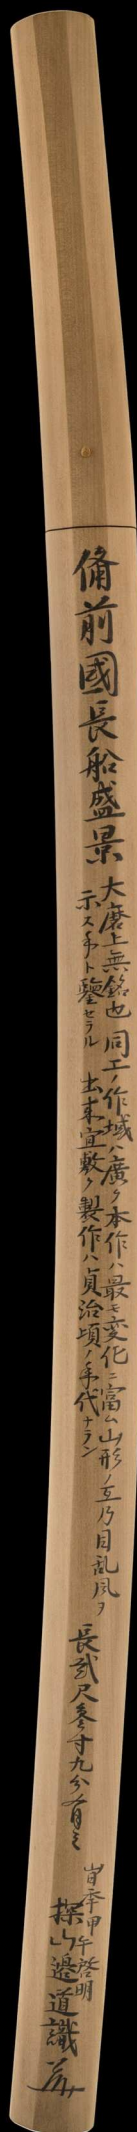 備前國長船盛景
大磨上無銘也 同工ノ作域ハ廣ク本作ハ最モ変化ニ富ム山形ノ互乃目乱風ヲ
示ス手ト鑒セラル 出来宜敷ク製作ハ貞治頃ノ年代ナラン
長貳尺参寸九分有之
甲午啓明
探山邉道識